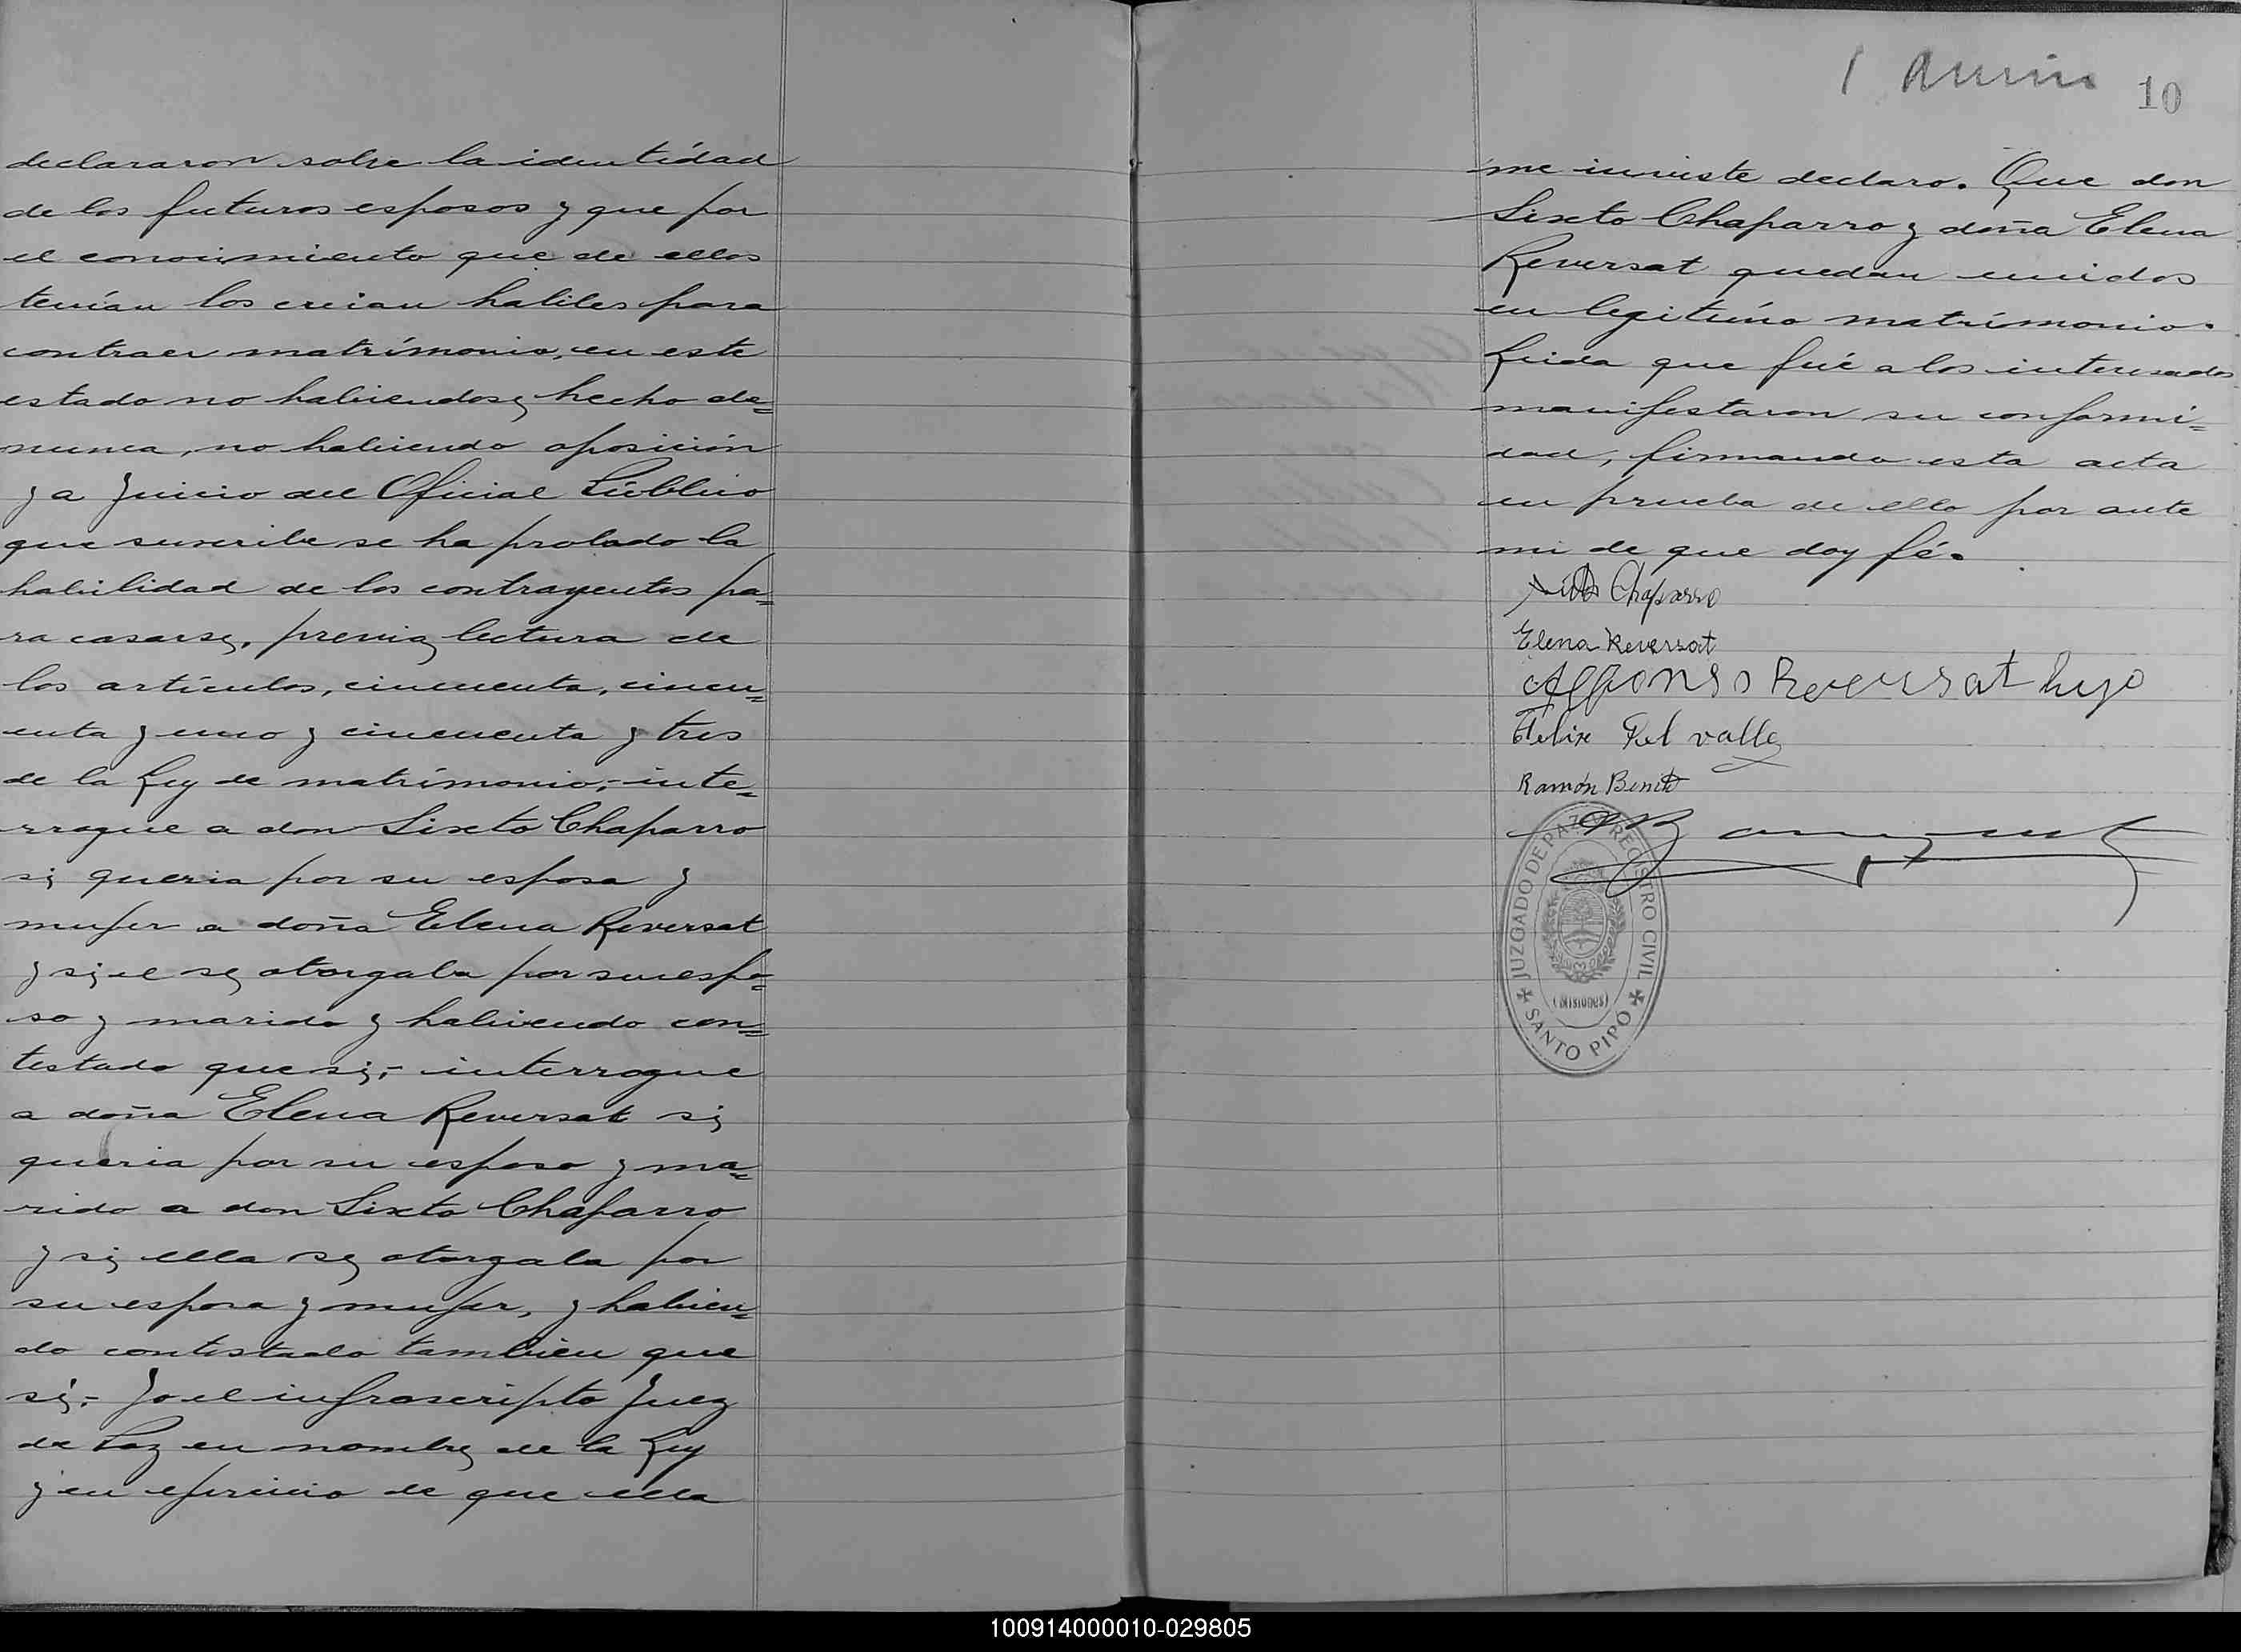 declararon sobre la identidad
de los futuros esposos y que por
el conocimiento que de ellos
tenían los creian habiles para
contraer matrimonio, en este
estado no habiendose hecho de=
nunca, no habiendo oposición
y a Juicio del Oficial Público
que suscribe se ha probado la
habilidad de los contrayentes pa=
ra casarse, previa lectura de
los artículos, cincuenta, cincu=
enta y uno y cincuenta y tres
de la Ley de matrimonio,- inte=
rrogue a don Sixto Chaparro
si queria por su esposa y
mujer a doña Elena Reversat
y si el se otorgaba por su espo=
so y marido y habiendo con=
testado que si,- interrogue
a doña Elena Reversat si
queria por su esposo y ma=
rido a don Sixto Chaparro
y si ella se otorgaba por
su esposa y mujer, y habien=
do contestado tambien que
si,- Yo el infrascripto Juez
de Paz en nombre de la Ley
y en ejercicio de que ella
10
me inviste declaro. Que don
Sixto Chaparro y doña Elena
Reversat quedan unidos
en legitimo matrimonio.
Leida que fué a los interesados
manifestaron su conformi=
dad, firmando esta acta
en prueba de ello por ante
mi de que doy fé.
Chaparro
Elena Reversat
Alfonso Reversat hijo
Felix del valle
Ramón Benit
JUZGADO DE PAZ Y REGISTRO CIVIL
(MISIONES)
SANTO PIPO
100914000010-029805